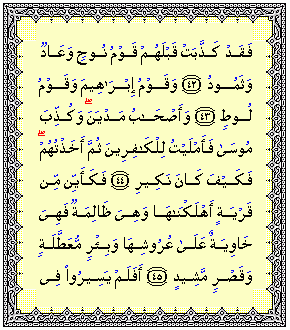 فَقَدْ كَذَّبَتْ قَبْلَهُمْ قَوْمُ نُوحٍ وَعَادٌ
وَثَمُودُ ﴿٤٢﴾ وَقَوْمُ إِبْرَاهِيمَ وَقَوْمُ
لُوطٍ ﴿٤٣﴾ وَأَصْحَـٰبُ مَدْيَنَ ۖ وَكُذِّبَ
مُوسَىٰ فَأَمْلَيْتُ لِلْكَـٰفِرِينَ ثُمَّ أَخَذْتُهُمْ ۖ
فَكَيْفَ كَانَ نَكِيرِ ﴿٤٤﴾ فَكَأَيِّن مِّن
قَرْيَةٍ أَهْلَكْنَـٰهَا وَهِىَ ظَالِمَةٌ فَهِىَ
خَاوِيَةٌ عَلَىٰ عُرُوشِهَا وَبِئْرٍ مُّعَطَّلَةٍ
وَقَصْرٍ مَّشِيدٍ ﴿٤٥﴾ أَفَلَمْ يَسِيرُوا۟ فِى